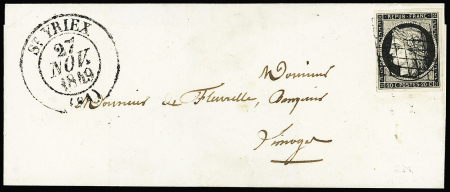 ST YRIEX
27
NOV.
1849
REPUB. FRANC.
Monsieur
Monsieur de Fleurelle, Banquier
Limoges